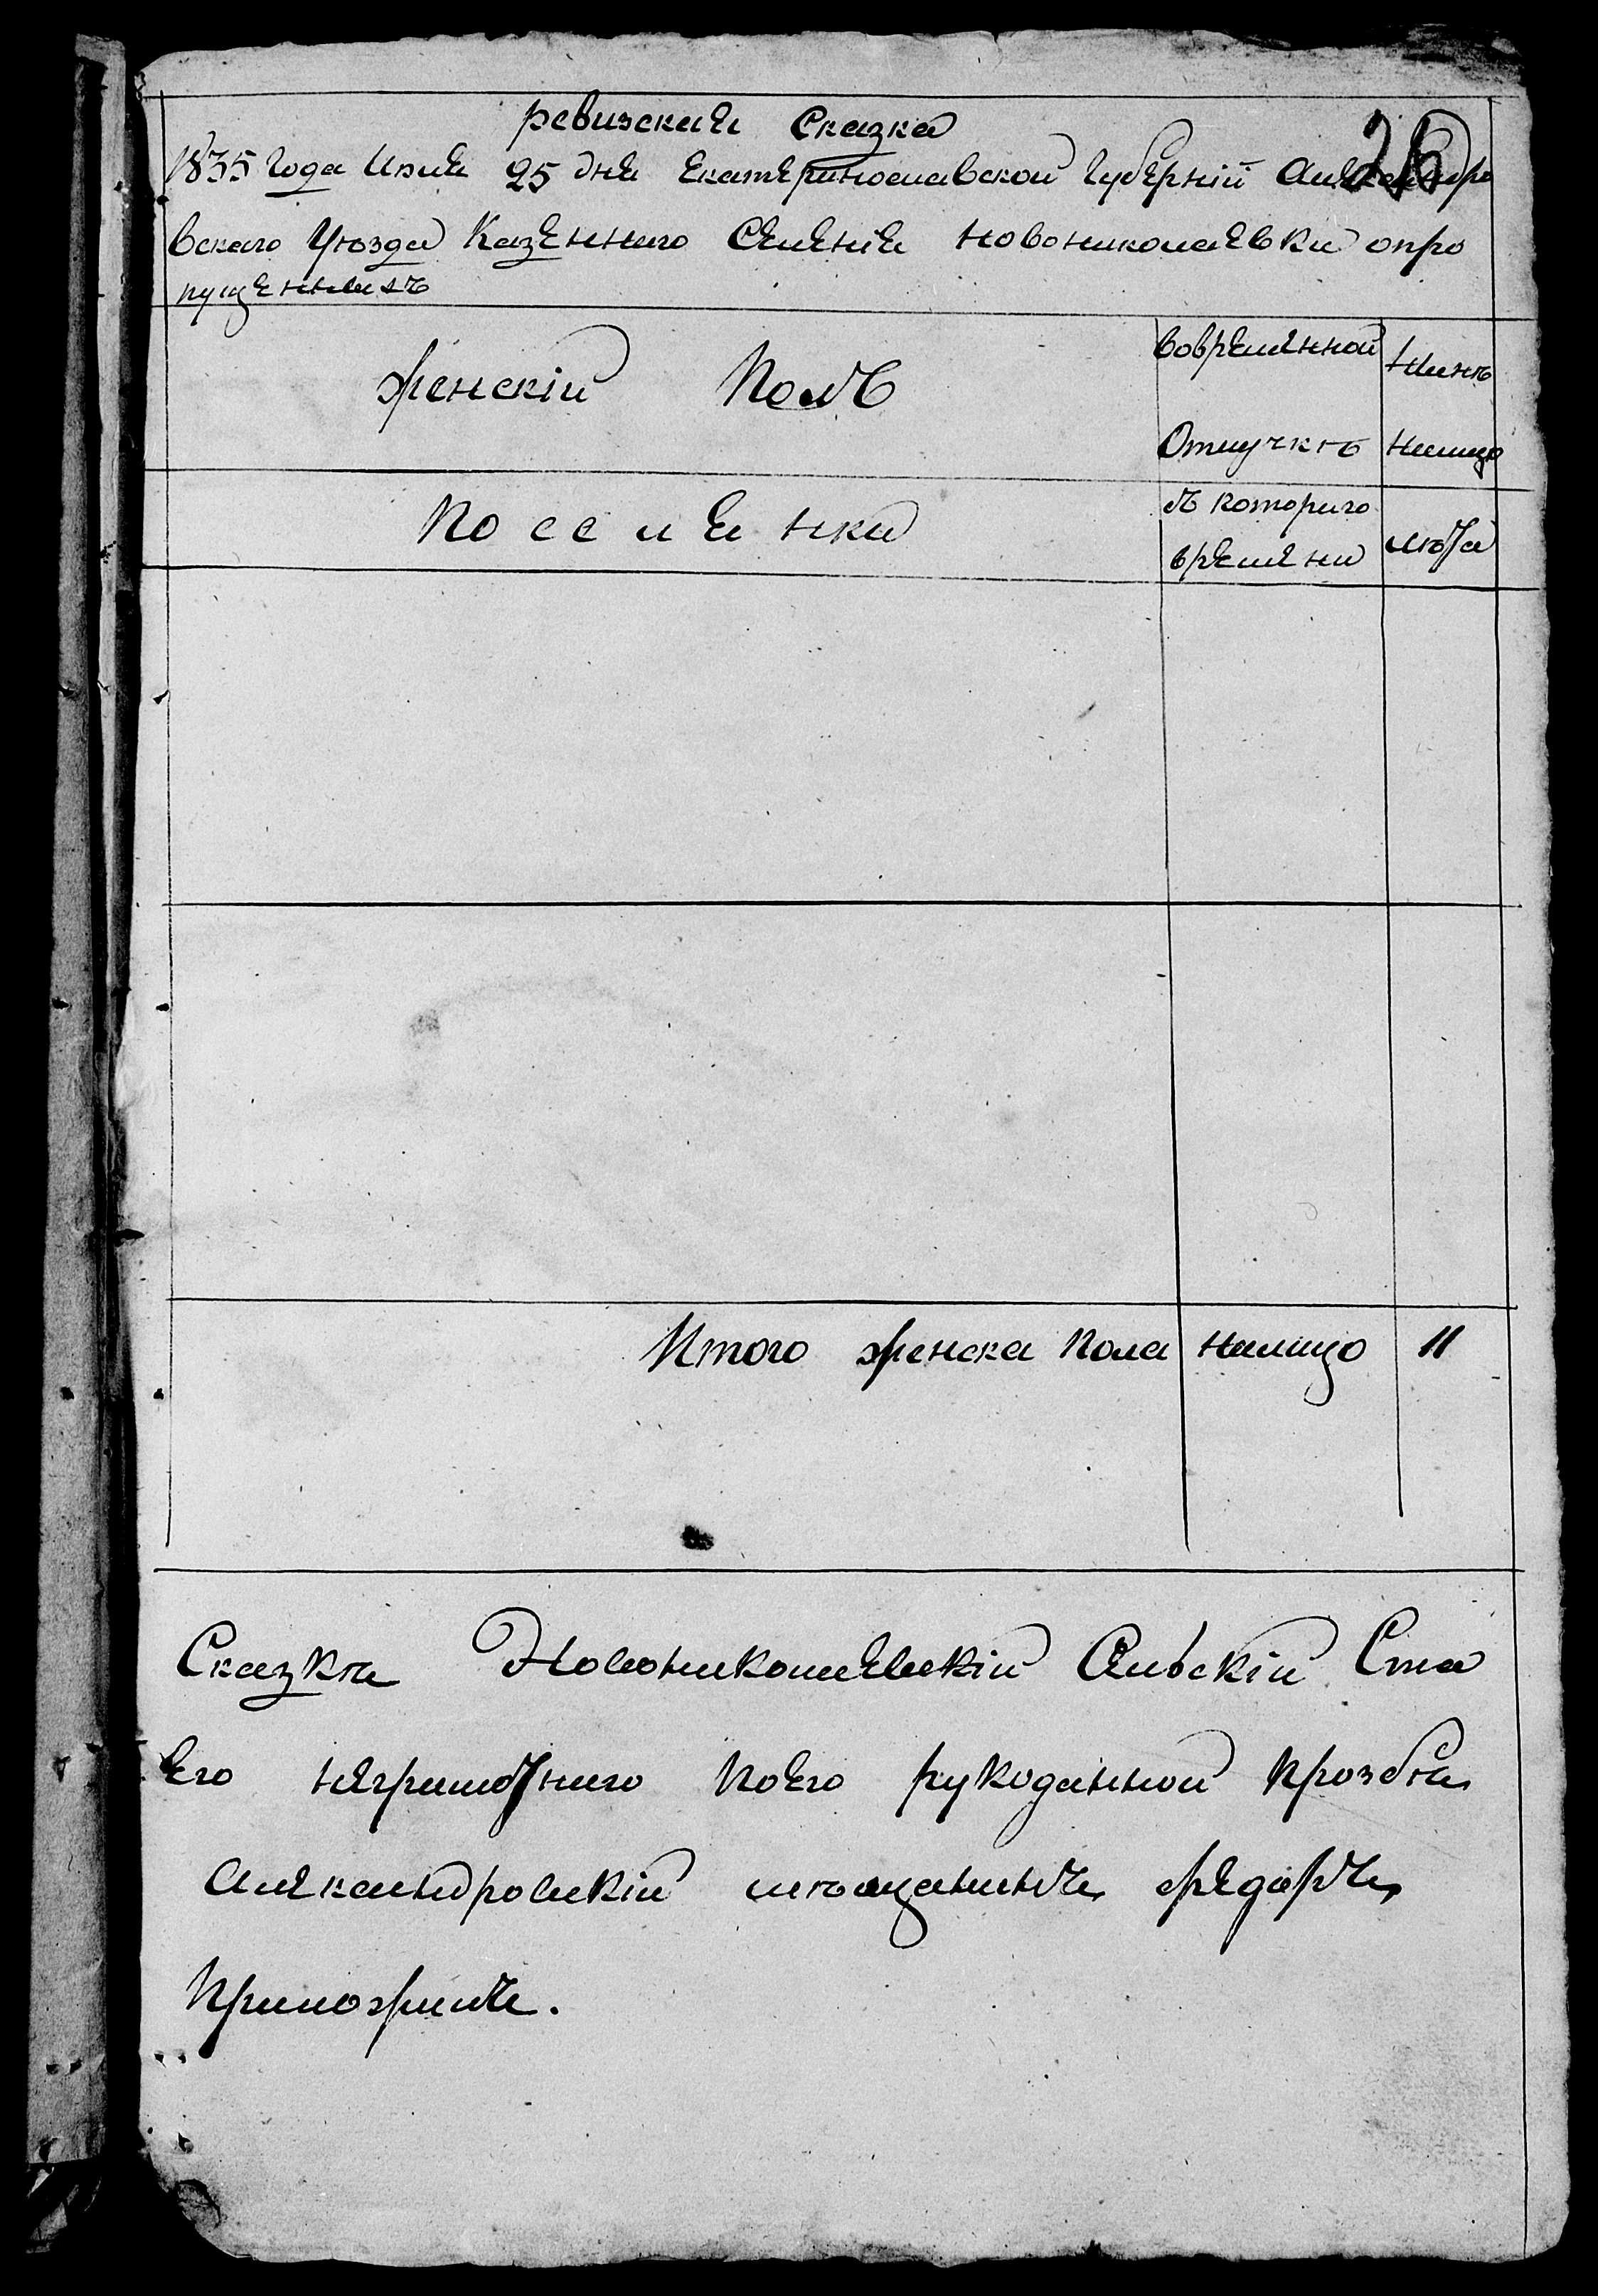 ревизская Сказка
26
1835 года Июня 25 дня Екатеринославской Губернїи Александро
вскаго Уезда Казеннаго Селенїя Новониколаевки опро
пущенныхъ
женскїй Полъ
вовременной
Отлучкѣ
Нынѣ
налицо
Посселянки
съ котораго
времени
лѣта
Итого женска пола налицо 11
Сказкѣ Новониколаевскїй Сельскїй Ста
Его неграмотнаго поЕго рукоданной прозбѣ
Александровскїй мѣщанинъ Федоръ
Приложилъ.